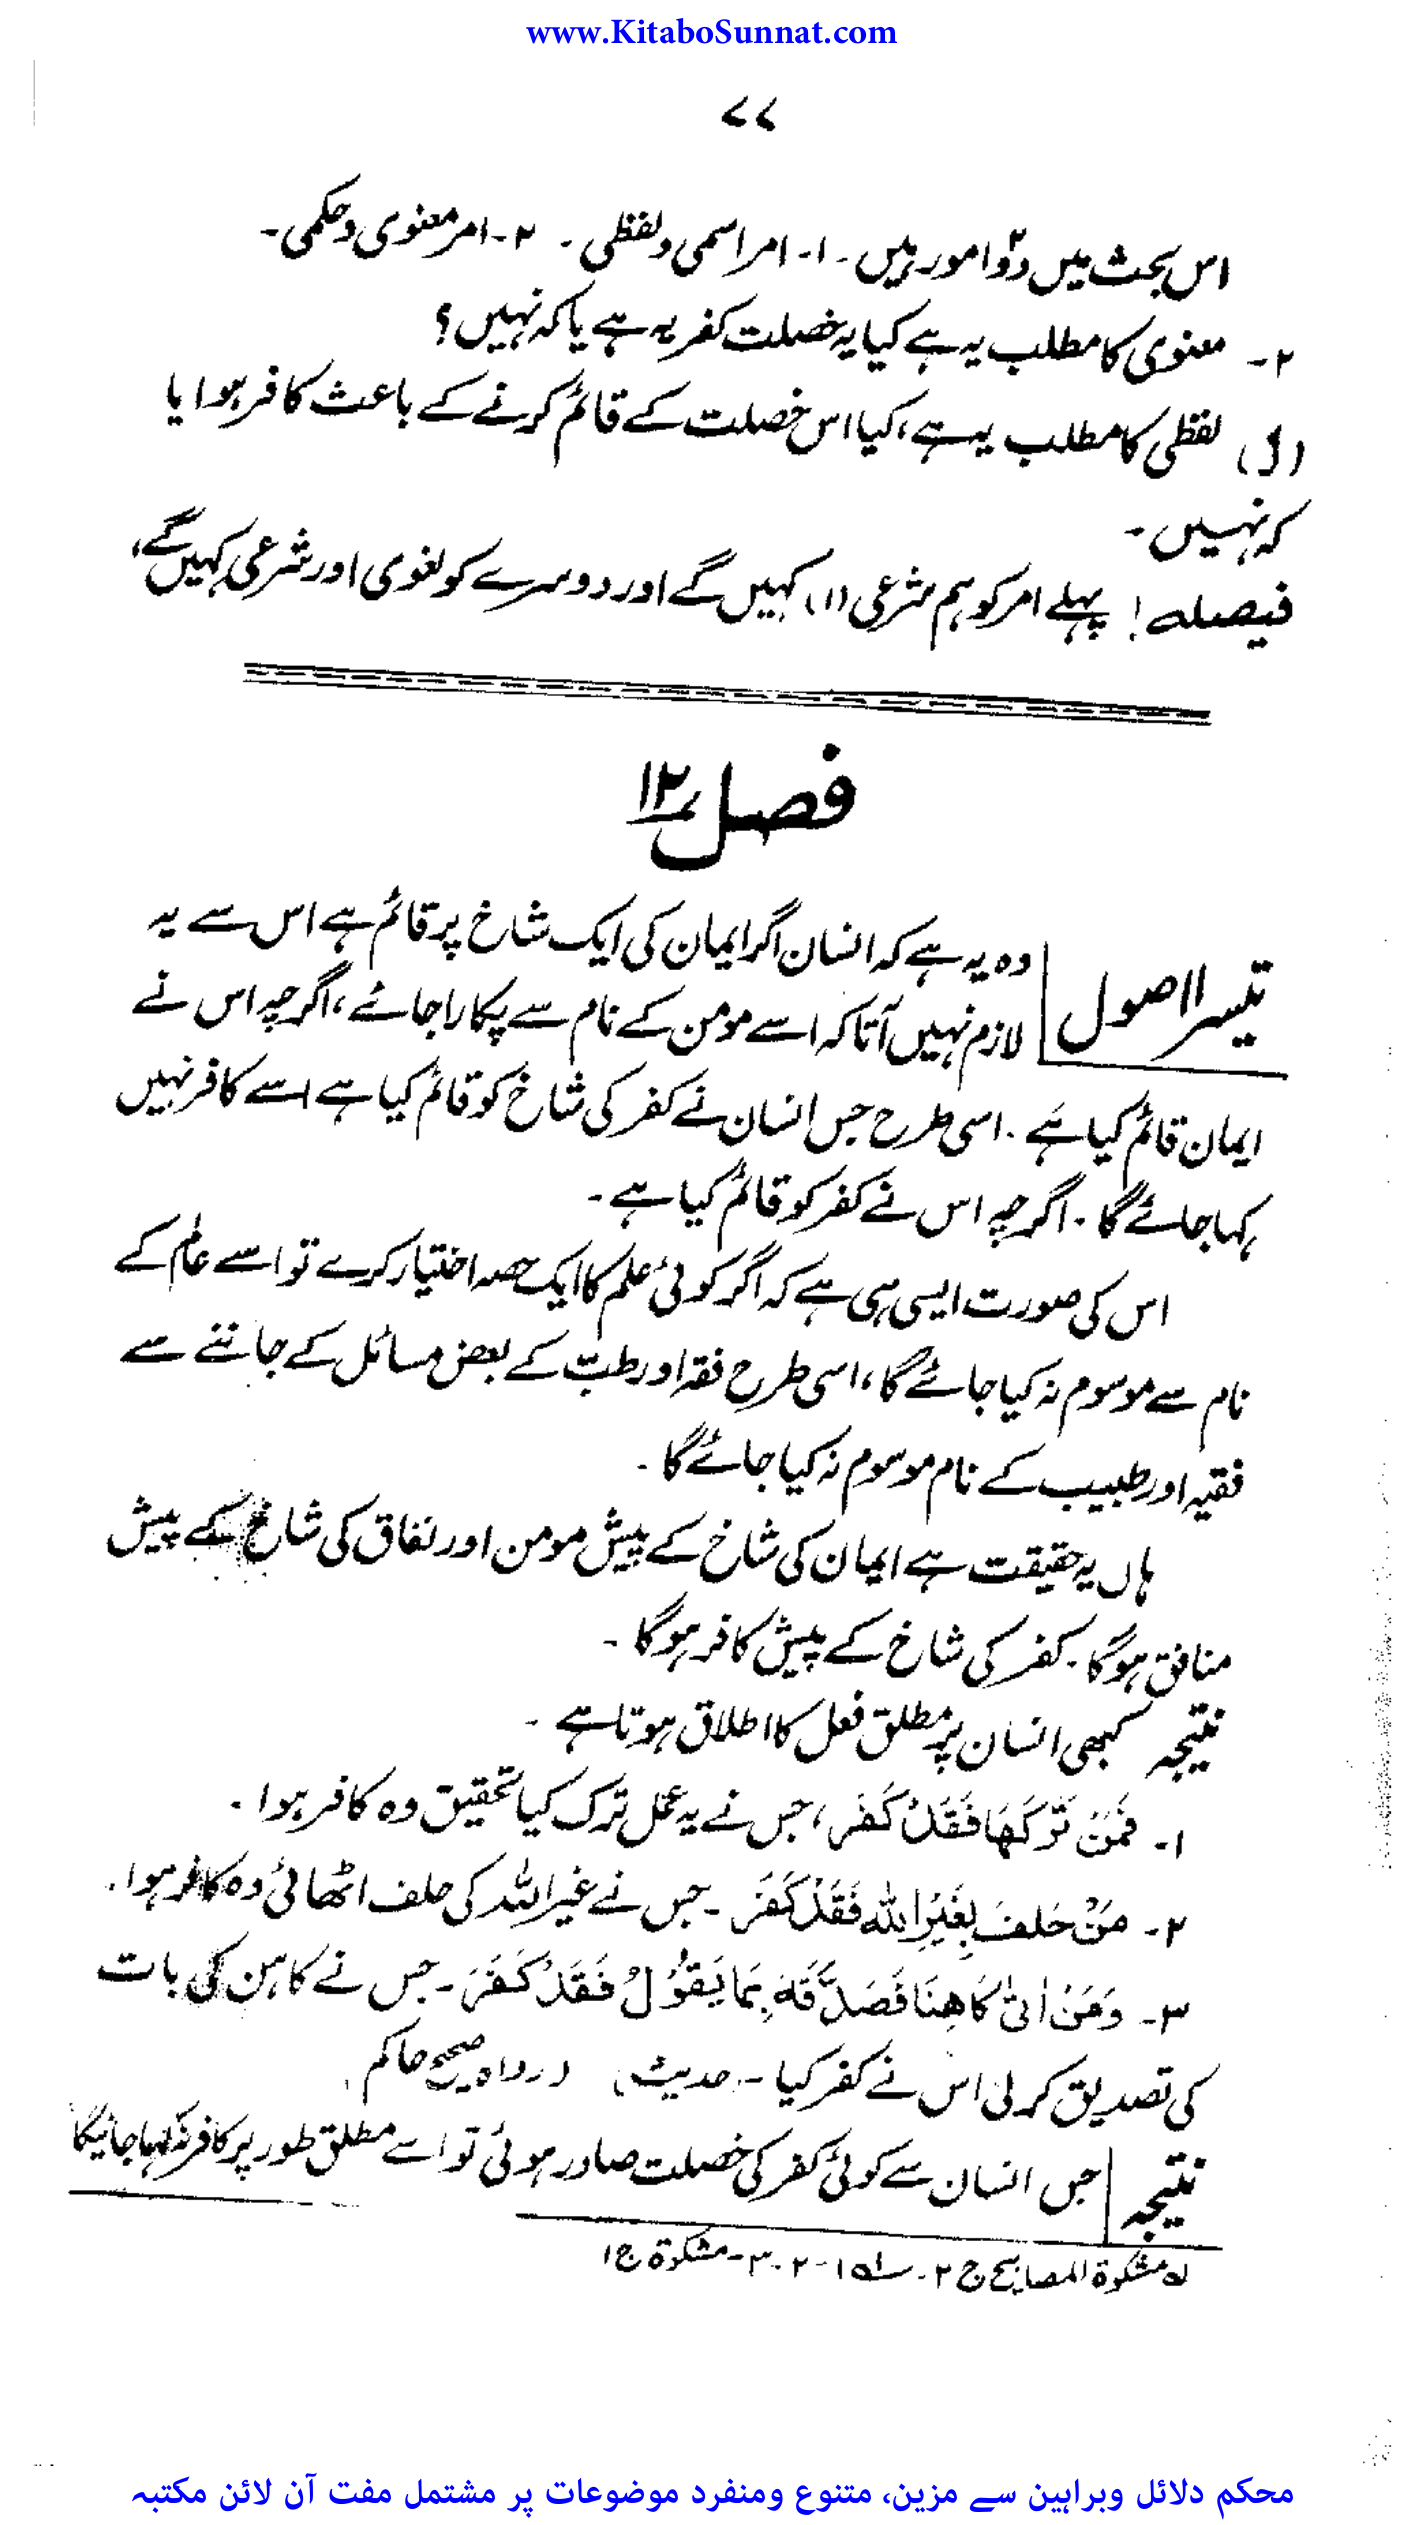 www.KitaboSunnat.com
۷۷
اس بحث میں دو۲ امور ہیں۔ ۱- امر اسمی و لفظی۔ ۲- امر معنوی و حکمی۔
۲- معنوی کا مطلب یہ ہے کیا یہ خصلت کفریہ ہے یا کہ نہیں؟
لفظی کا مطلب یہ ہے، کیا اس خصلت کے قائم کرنے کے باعث کافر ہوا یا
کہ نہیں۔
فیصلہ! پہلے امر کو ہم شرعی (۱) کہیں گے اور دوسرے کو لغوی اور شرعی کہیں گے،
فصل ۱۲
تیسرا اصول
وہ یہ ہے کہ انسان اگر ایمان کی ایک شاخ پر قائم ہے اس سے یہ
لازم نہیں آتا کہ اسے مومن کے نام سے پکارا جائے، اگرچہ اس نے
ایمان قائم کیا ہے۔ اسی طرح جس انسان نے کفر کی شاخ کو قائم کیا ہے اسے کافر نہیں
کہا جائے گا۔ اگرچہ اس نے کفر کو قائم کیا ہے۔
اس کی صورت ایسی ہی ہے کہ اگر کوئی علم کا ایک حصہ اختیار کرے تو اسے عالم کے
نام سے موسوم نہ کیا جائے گا، اسی طرح فقہ اور طب کے بعض مسائل کے جاننے سے
فقیہ اور طبیب کے نام موسوم نہ کیا جائے گا۔
ہاں یہ حقیقت ہے ایمان کی شاخ کے پیش مومن اور نفاق کی شاخ کے پیش
منافق ہوگا۔ کفر کی شاخ کے پیش کافر ہوگا۔
نتیجہ کبھی انسان پر مطلق فعل کا اطلاق ہوتا ہے۔
۱- فَمَنْ تَرَكَهَا فَقَدْ كَفَرَ، جس نے یہ عمل ترک کیا تحقیق وہ کافر ہوا۔
۲- مَنْ حَلفَ بِغَيْرِ اللهِ فَقَدْ كَفَرَ۔ جس نے غیر اللہ کی حلف اٹھائی وہ کافر ہوا۔
۳- وَمَنْ اٰتىٰ كَاهِنًا فَصَدَّقَهٗ بِمَا يَقُوْلُ فَقَدْ كَفَرَ۔ جس نے کاہن کی بات
کی تصدیق کر لی اس نے کفر کیا۔ (حدیث) (رواہ صحیح حاکم)
نتیجہ
جس انسان سے کوئی کفر کی خصلت صادر ہوئی تو اسے مطلق طور پر کافر نہ کہا جائیگا
لہ مشکوٰۃ المصابیح ج ۲۔ ۱-۲-۳- مشکوٰۃ ج ۱
محکم دلائل وبراہین سے مزین، متنوع ومنفرد موضوعات پر مشتمل مفت آن لائن مکتبہ